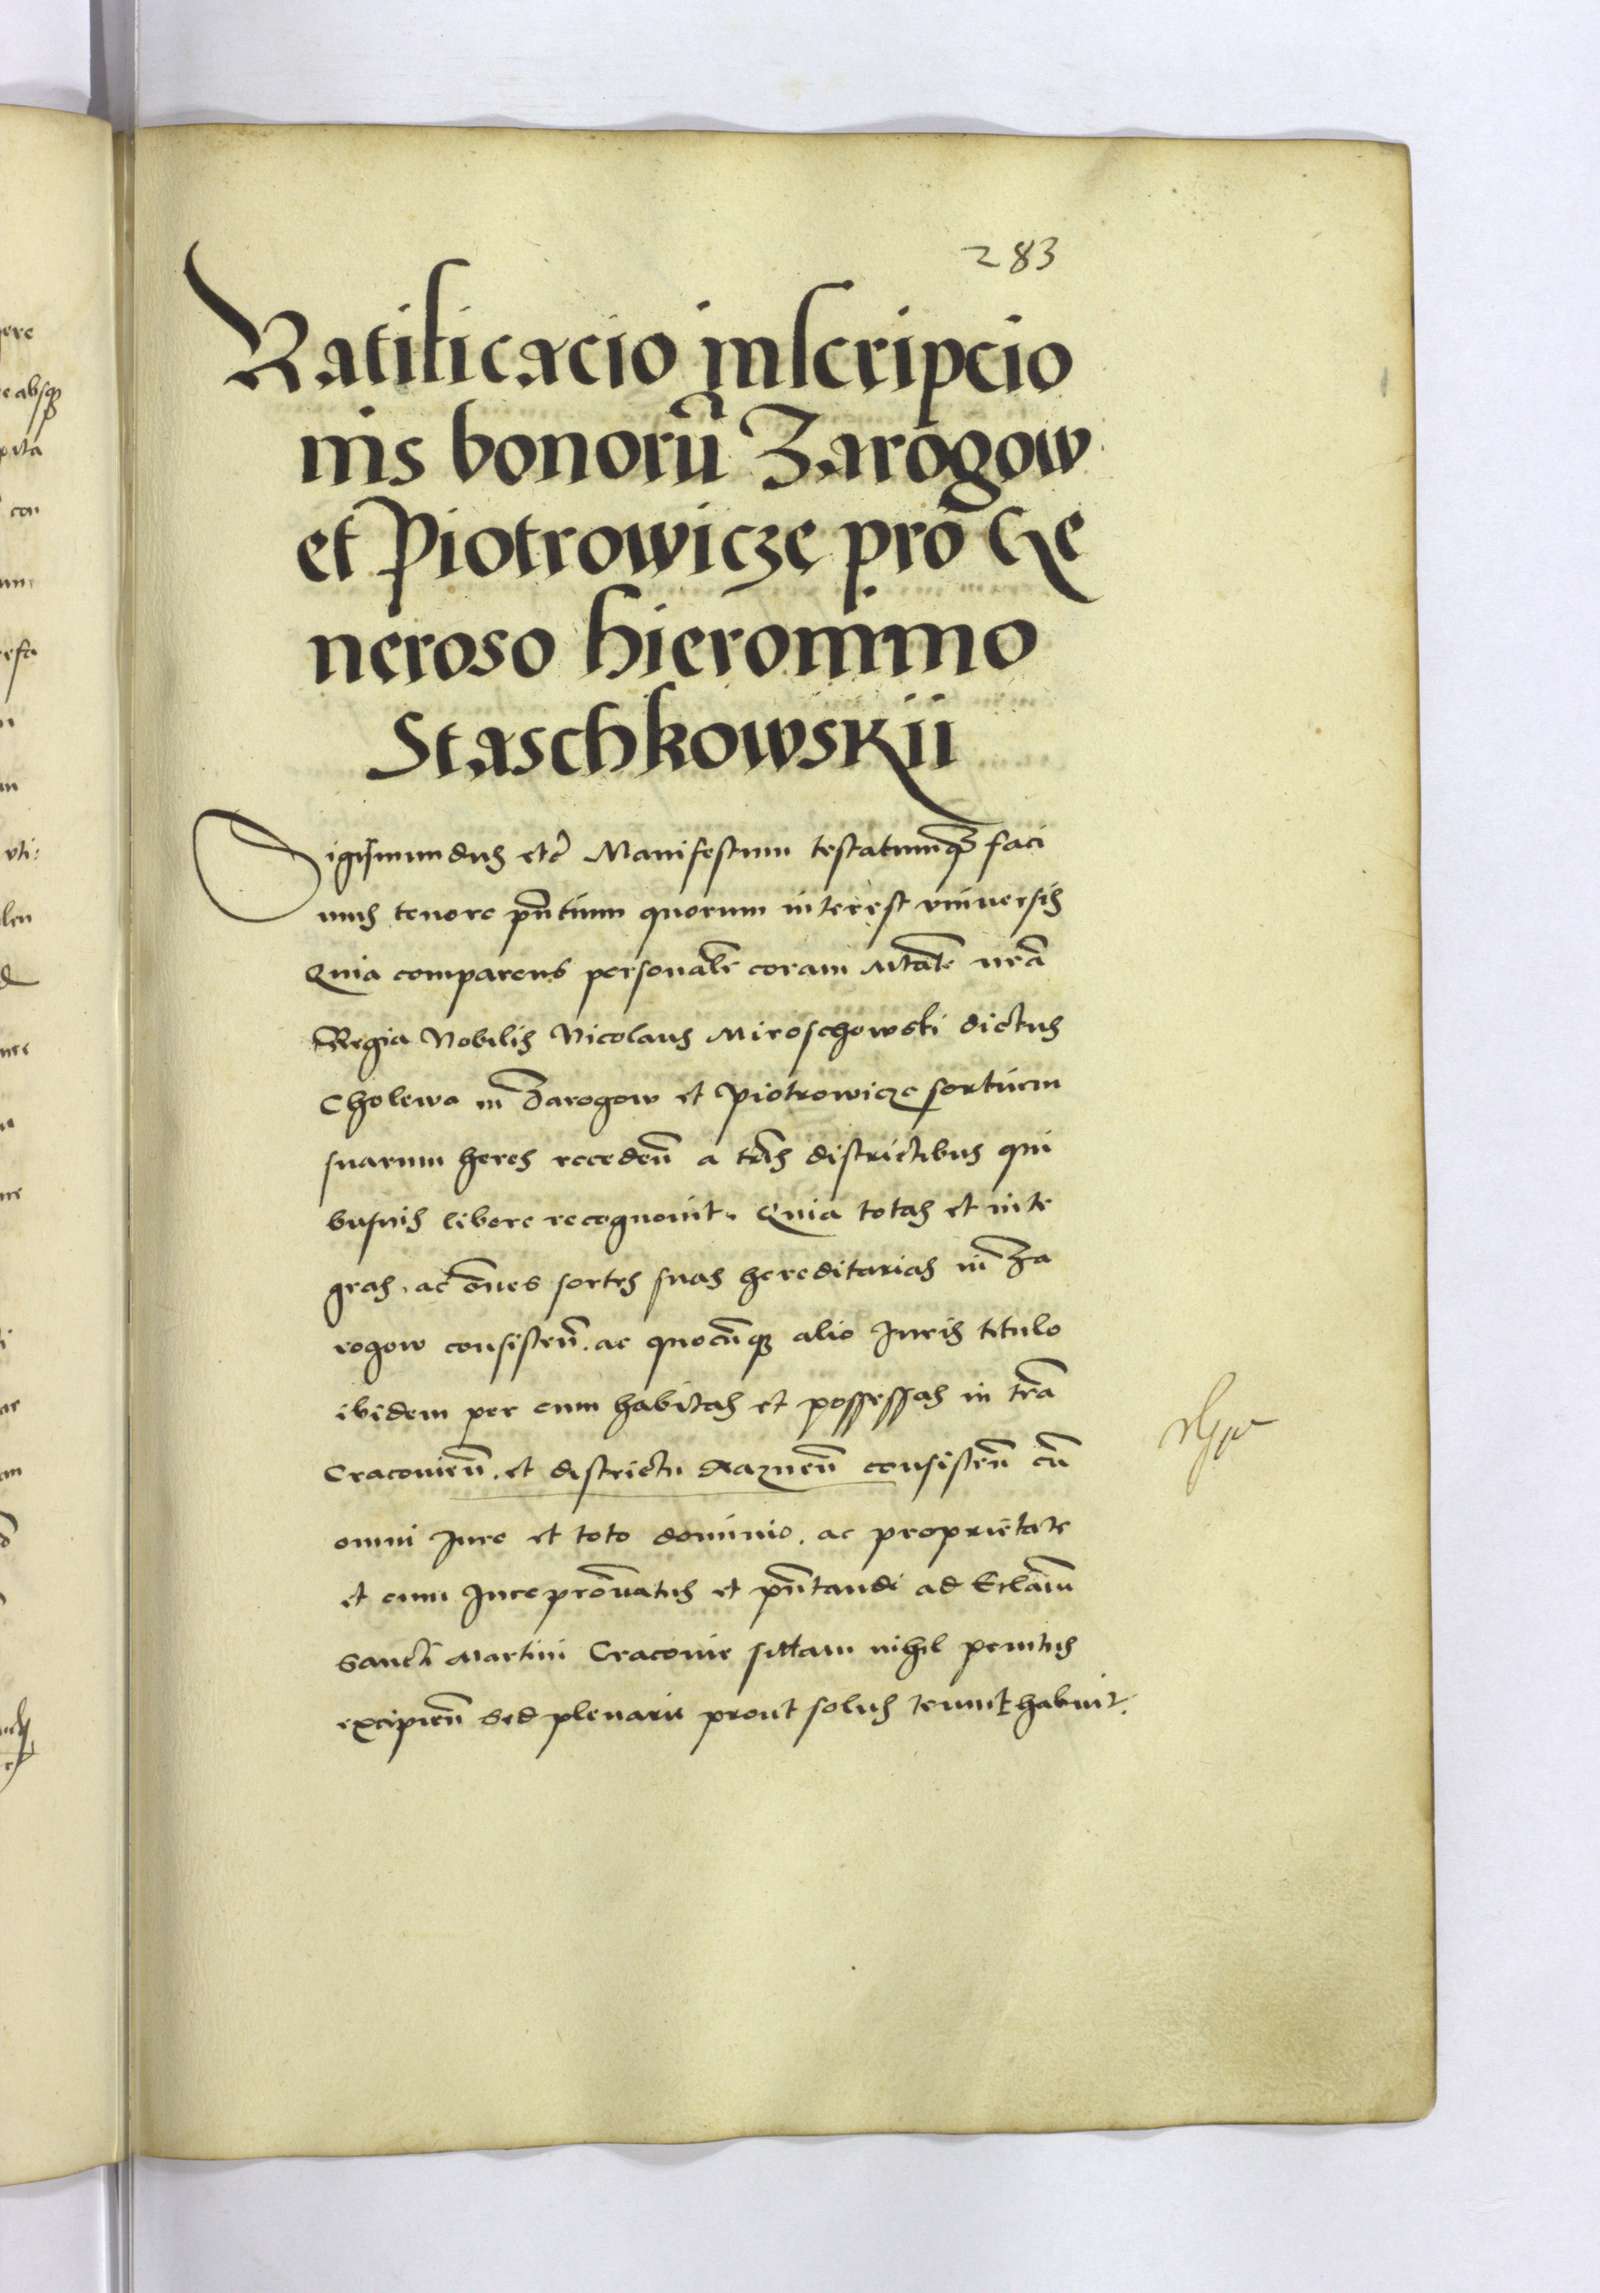 283
Ratificacio inscripcio
nis bonorū Zarogow
et Piotrowicze pro Ge
neroso hieronimo
Staschkowskii
Sigismundus etc̃ Manifestum testatumq̃ faci
mus tenore pñtium quorum interest vniuersis
Quia comparens personalr̃ coram Mtate nr̃a
Regia Nobilis Nicolaus Miroschowski dictus
Cholewa in Zarogow et Piotrowicze sortium
suarum heres recedeñ a tr̃is districtibus qui
busuis libere recognouit. Quia totas et inte
gras. ac om̃es sortes suas hereditarias in Za
rogow consisteñ. ac quocũq alio Juris titulo
ibidem per eum habitas et possessas in tr̃a
Cracovieñ. et districtu Xazneñ consisteñ cũ
omni Jure et toto dominio. ac proprietate
et cum Jure pr̃onatus et pñtandi ad Ecl̃iam
Sancti Martini Cracovie sittam nihil penitus
excipieñ Sed plenarie prout solus tenuit habuit.